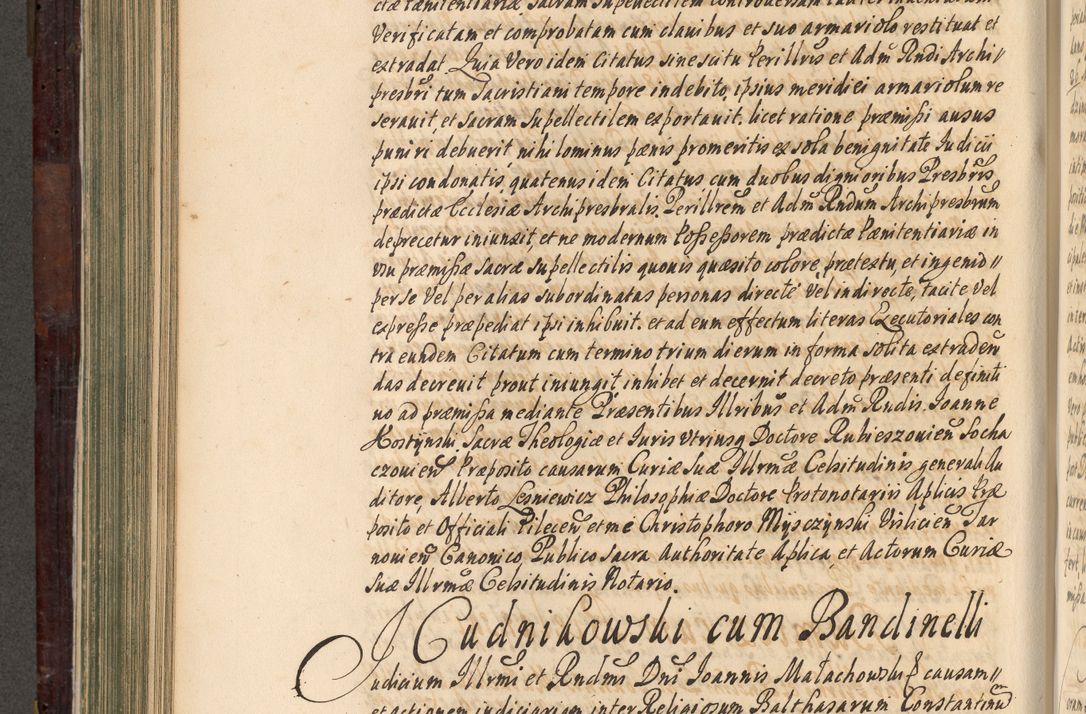 Verificatam et comprobatam cum clauibus et suo armariolo restituat et
extradat. Quia Vero idem Citatus sine scitu Perillris et Adm Rndi Archi〃
presbri tum Sacristiani tempore indebito, ipsius meridiei armariolum re
serauit, et sacram supellectilem exportauit. licet ratione præmissi ausus
puniri debuerit nihilominus pænis promeritis ex sola benignitate Iudicii
ipsi condonatis, quatenus idem Citatus cum duobus dignioribus Presbris
prædictæ Ecclesiæ Archipresbralis, Perillrem et Adm Rndum Archipresbrum
deprecetur iniunxit, et ne modernum Possessorem prædictæ Pænitentiariæ in
usu præmissæ sacræ supellectilis quouis quæsito colore, prætextu, et ingenio〃
per se Vel per alias subordinatas personas directe Vel indirecte, tacite Vel
expresse præpediat ipsi inhibuit. et ad eum effectum literas Executoriales con
tra eundem Citatum cum termino trium dierum in forma solita extraden
das decreuit prout iniungit, inhibet et decernit decreto præsenti definiti
uo ad præmissa mediante Præsentibus Illribus et Adm Rndis. Ioanne
Hostynski Sacræ Theologiæ et Iuris Vtriusq Doctore Rubieszouien Socha
czouien Præposito causarum Curiæ Suæ Illrmæ Celsitudinis generali Au
ditore, Alberto Lesniewicz Philosophiæ Doctore Protonotariis Aplicis Præ
posito et Officiali Pilecen et me Christophoro Mysczynski Vislicien Tar
nouien Canonico, Publico sacra Authoritate Aplica, et Actorum Curiæ
Suæ Illrmæ Celsitudinis Notario.
Cudnikowski cum Bandinelli
Iudicium Illrmi et Rndmi Dni Ioannis Małachowski causam〃
et actionem iudiciariam inter Religiosum Balthasarum Constantinu